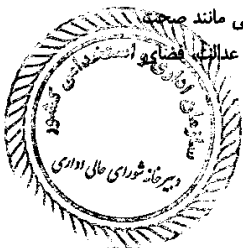 ی مانند صحت
عدالت، قضای
سازمان اداری و استخدامی کشور
دبیرخانه شورای عالی اداری